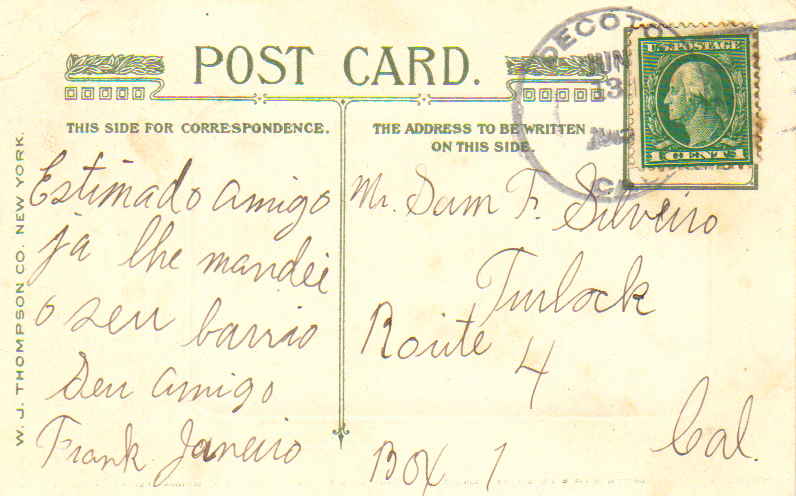 POST CARD.
THIS SIDE FOR CORRESPONDENCE.
THE ADDRESS TO BE WRITTEN
ON THIS SIDE.
DECOTO
JUN
3
CAL
U.S. POSTAGE
1 CENT 1
W. J. THOMPSON CO. NEW YORK.
Estimado amigo
ja lhe mandei
o seu barrio
Seu amigo
Frank Janeiro
Mr. Sam F. Silveiro
Turlock
Route 4
Box 1
Cal.